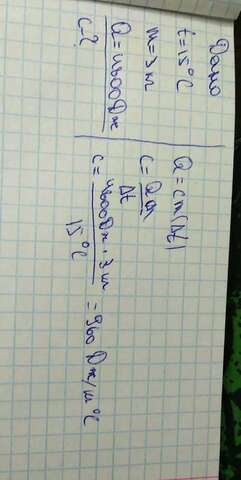 Дано
t=15°C
m=3 кг
Q=4800Дж
c-?
Q=cm(Δt)
c=Qm
Δt
c=4800Дж·3кг=960Дж/кг°C
15°C